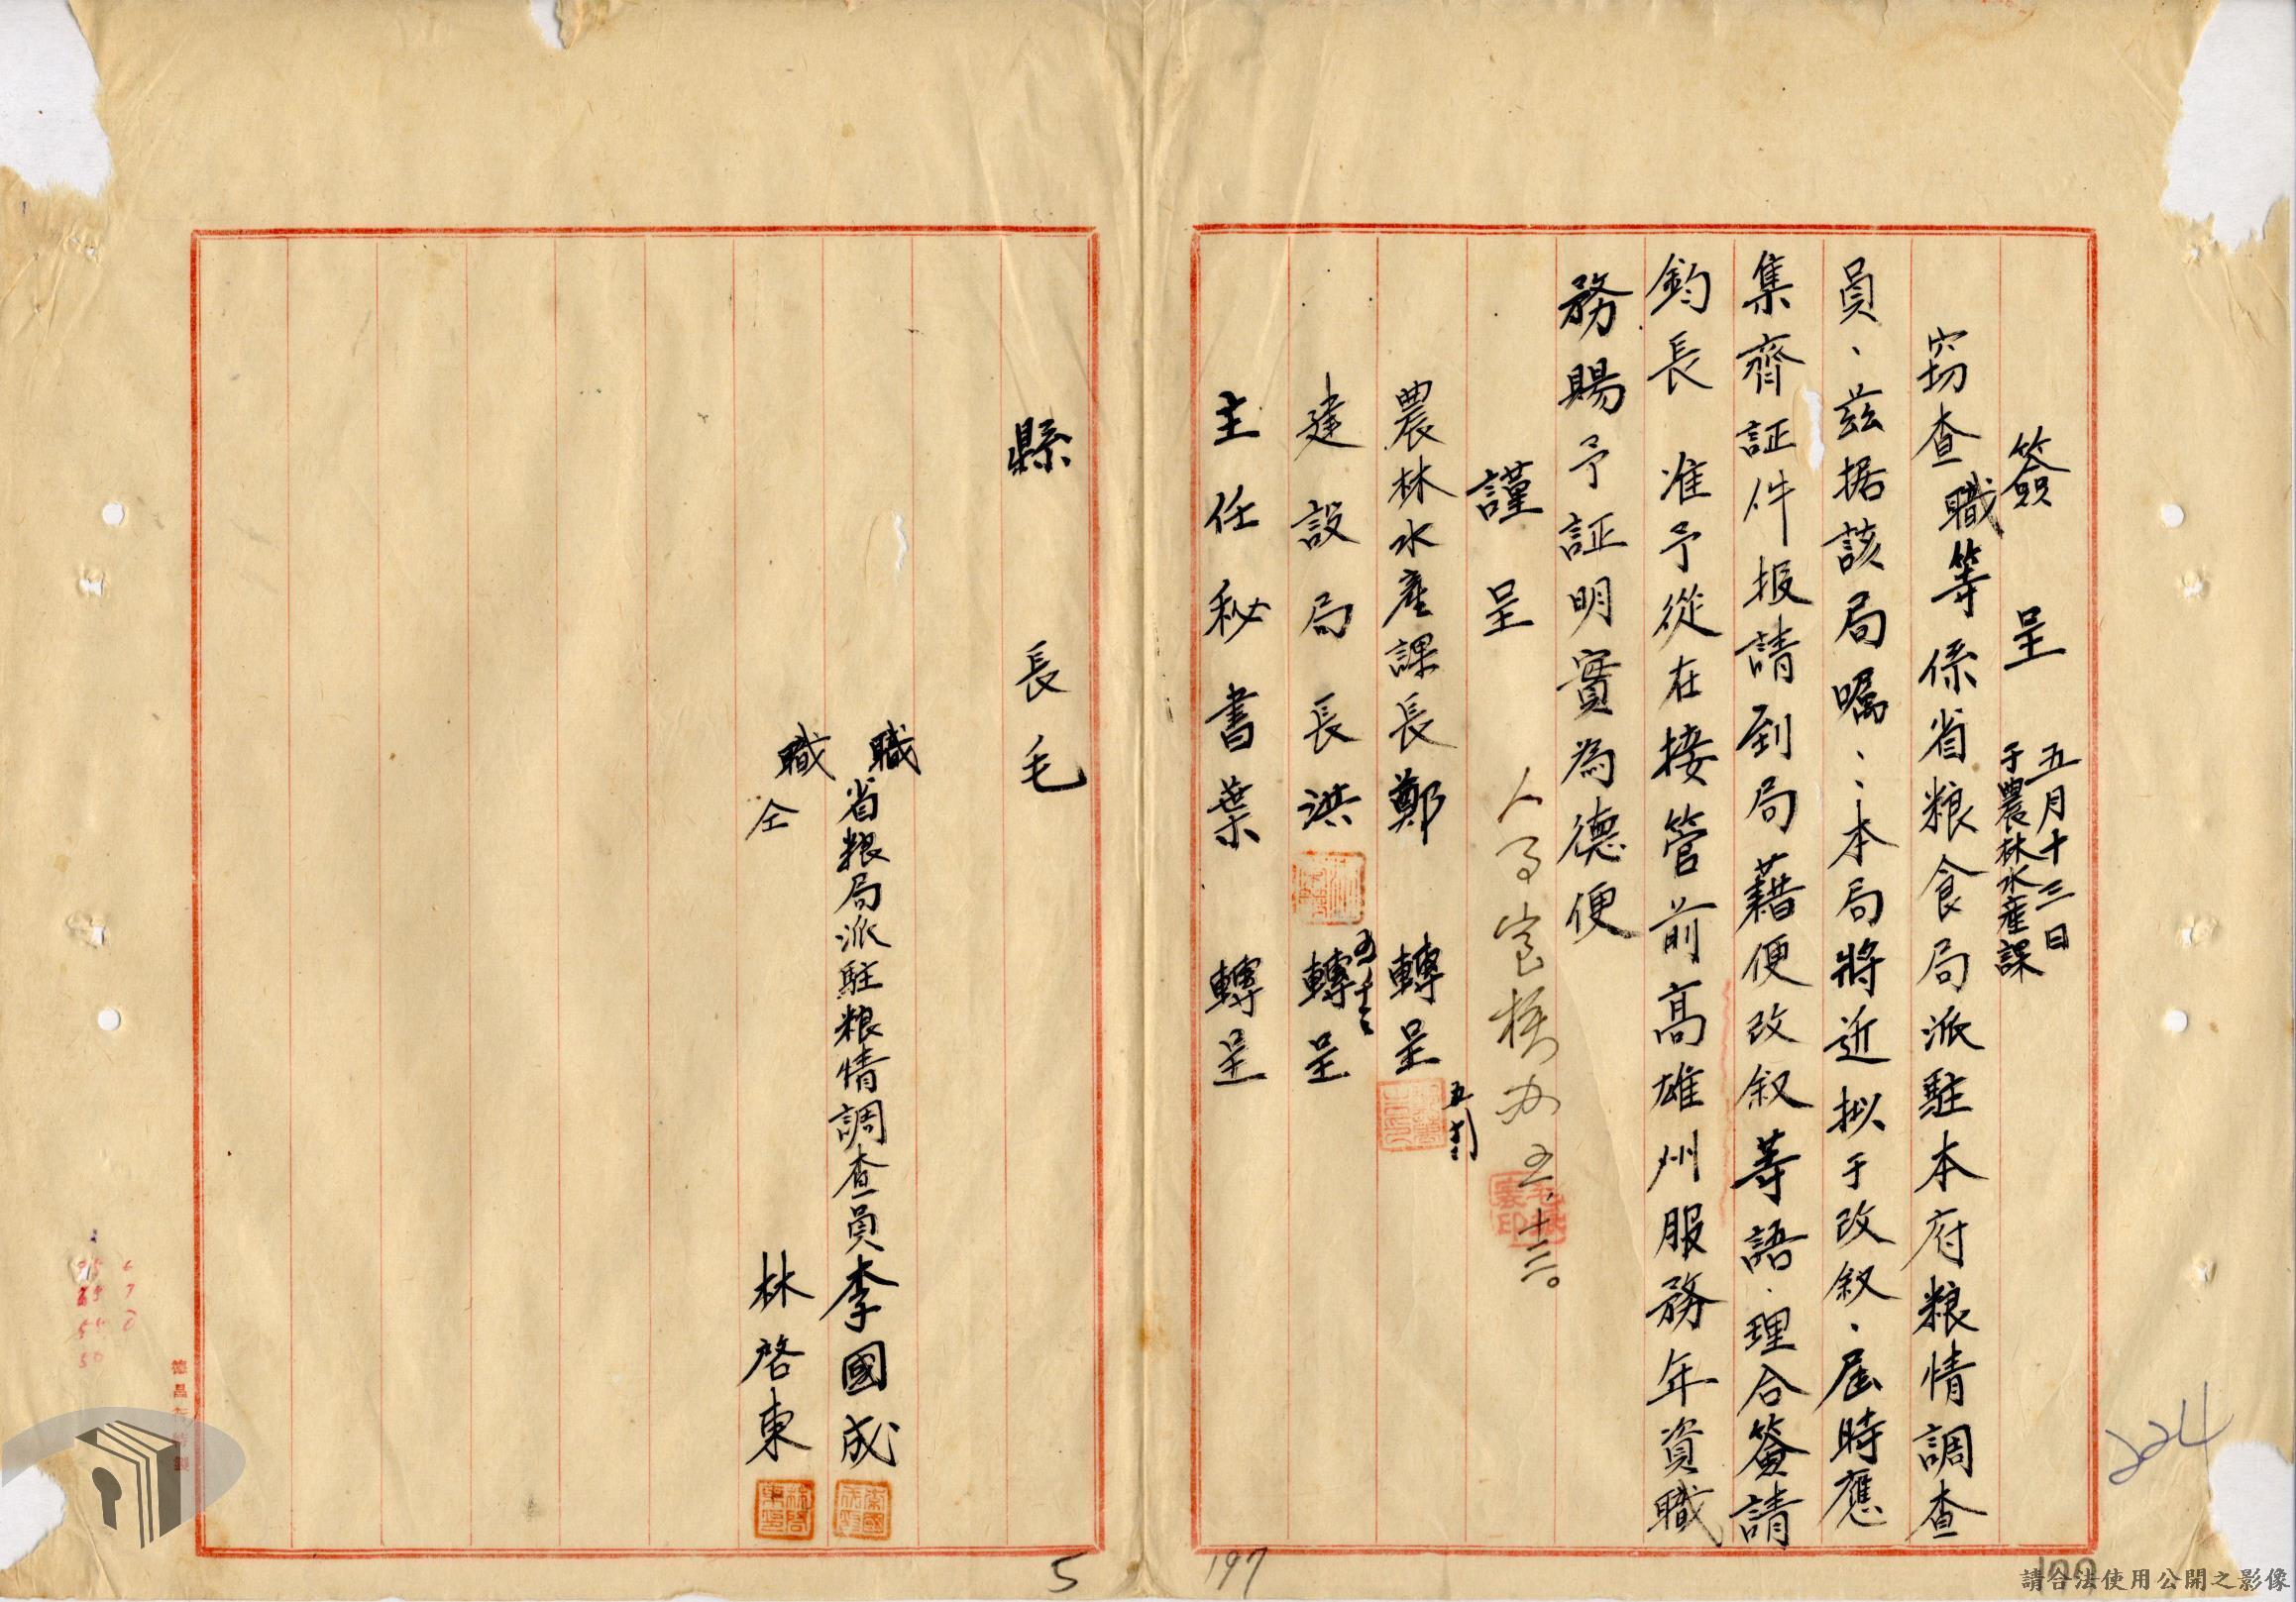 簽呈 五月十三日
于農林水產課
窃查職等係省粮食局派駐本府粮情調查
員、茲据該局囑：本局將近拟于改叙、屆時應
集齊証件报請到局藉便改叙等語．理合簽請
鈞長 准予從在接管前高雄州服務年資職
務賜予証明實為德便
謹呈
人事室核办 五、十三。
農林水產課長鄭 轉呈
建設局長洪 轉呈
主任秘書葉 轉呈
縣長毛
職省粮局派駐粮情調查員李國成
職仝 林啓東
224
197
5
請合法使用公開之影像